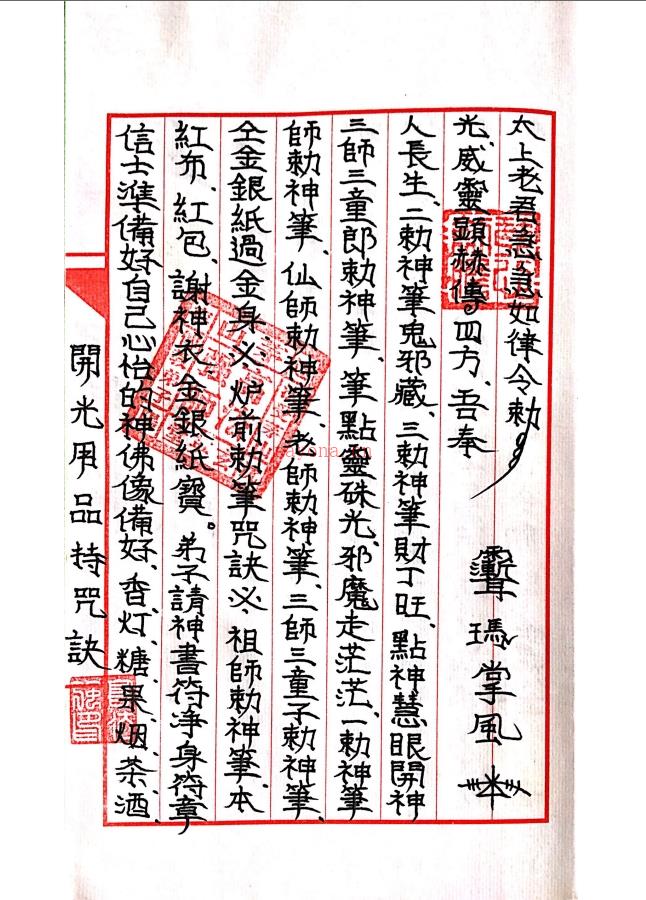 開光用品持咒訣
信士準備好自己心怡的神佛像備好、香灯、糖果、烟、茶酒、
紅布、紅包、謝神衣金銀紙寳。弟子請神書符淨身符章
仝金銀紙過金身、必、炉前勅筆咒訣必、祖師勅神筆、本
師勅神筆、仙師勅神筆、老師勅神筆、三師三童子勅神筆、
三師三童郎勅神筆、筆點靈硃光、邪魔走茫茫、一勅神筆
人長生、二勅神筆鬼邪藏、三勅神筆財丁旺、點神慧眼開神
光、威靈顕赫傳四方、吾奉
太上老君急急如律令勅
掌風